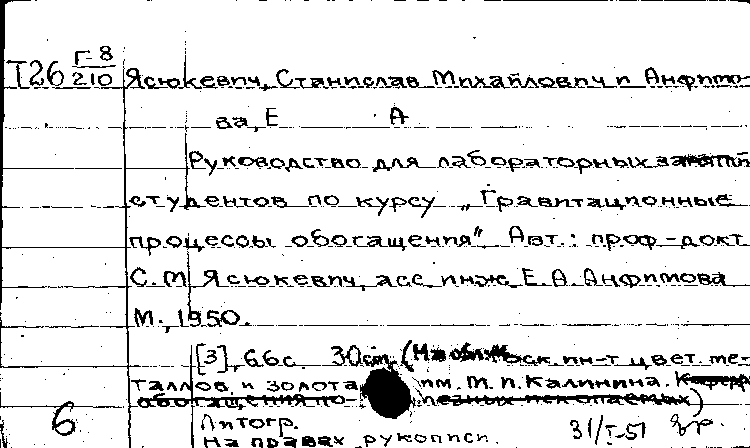 Т26 Г-8/210 Ясюкевич, Станислав Михайлович и Анфимо-
ва, Е А
Руководство для лабораторных занятий
студентов по курсу „Гравитационные
процессы обогащения". Авт.: проф.-докт
С.М Ясюкевич, асс. инж. Е.А. Анфимова
М., 1950.
[3], 66с. 30см. (М-во Моск. ин-т цвет. ме-
таллов и золота им. М.И. Калинина.
обогащения по- лезных ископаемых)
6 Литогр. 31/I-51
На правах рукописи.